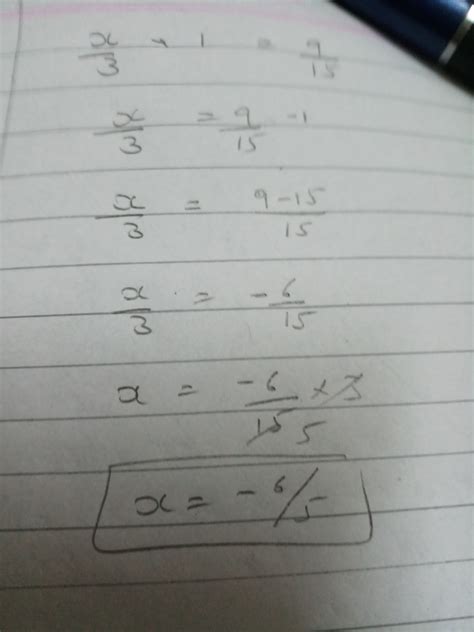 x/3 + 1 = 9/15
x/3 = 9/15 -1
x/3 = 9-15/15
x/3 = -6/15
x = -6/15 × 3 5
x = -6/5